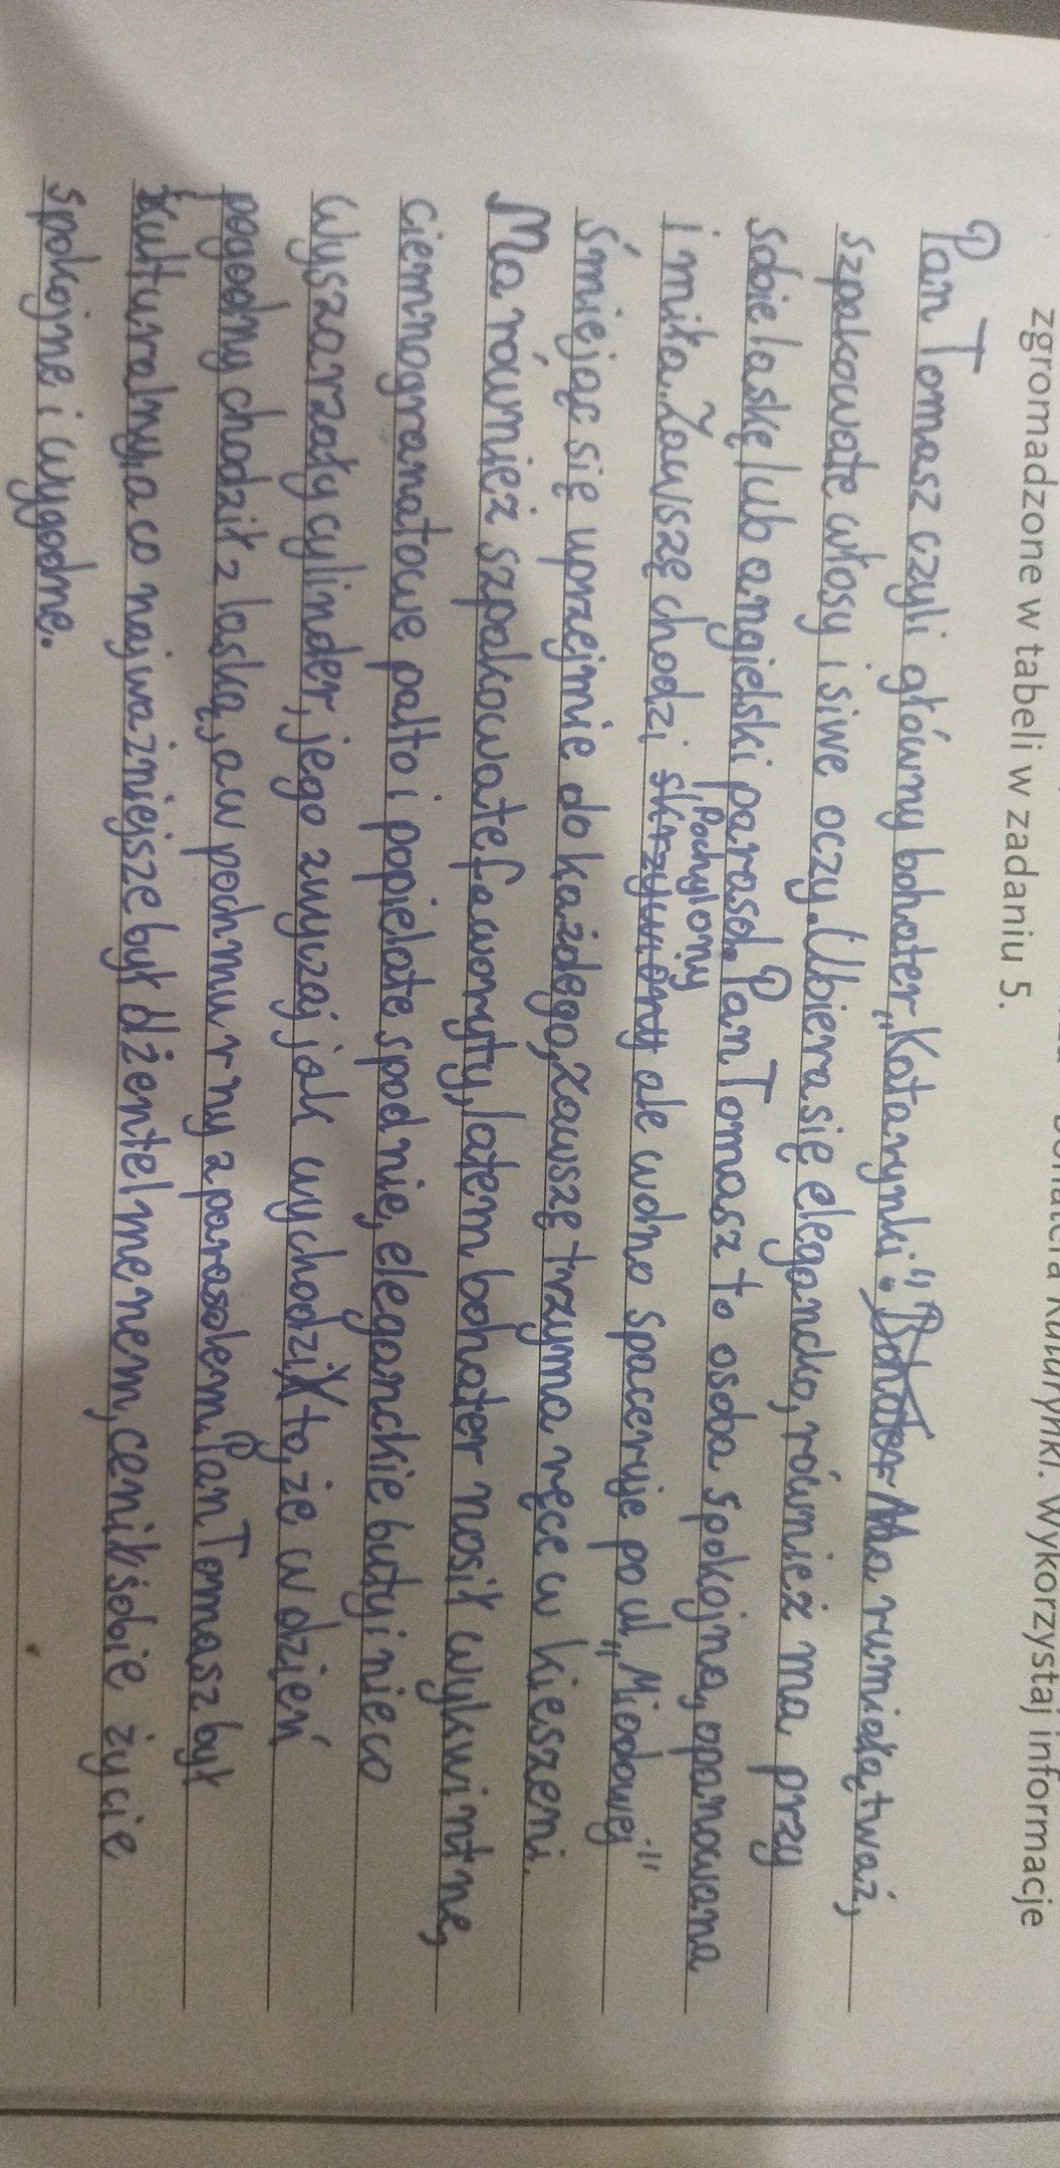 bohatera Katarynki. Wykorzystaj informacje
zgromadzone w tabeli w zadaniu 5.
Pan Tomasz czyli główny bohater „Katarynki". Bohater Ma rumiałą twaź,
szpakowate włosy i siwe oczy. Ubiera się elegancko, również ma przy
sobie laskę lub angielski parasol. Pan Tomasz to osoba spokojna, opanowana
i miła. Zawszę chodzi skrzywiony pochylony ale wdno spaceruje po ul „Miodowej"
śmiejąc się uprzejmie do każdego, zawszę trzyma ręce w kieszeni.
Ma również szpakowate faworyty, latem bohater nosił wykwintne,
ciemnogranatowe palto i popielate spodnie, eleganckie butyi nieco
wyszarzały cylinder, jego zwyczaj jak wychodził to, że w dzień
pogodny chodził z laską, a w pochmurny z parasolem. Pan Tomasz był
kulturalny, a co najważniejsze był dżentelmenenem, cenił sobie życie
spokojne i wygodne.